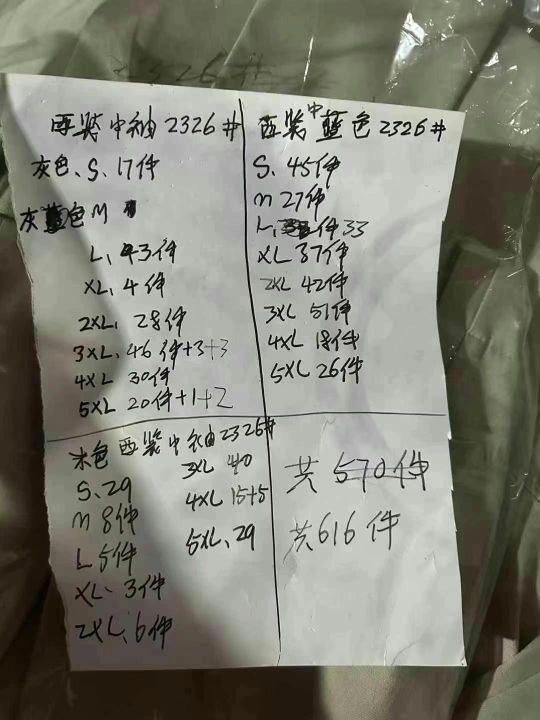 西装中袖2326#
灰色、S、17件
灰蓝色M
L、43件
XL、4件
2XL、28件
3XL、46件+3+3
4XL 30件
5XL 20件+1+2
西装中蓝色2326#
S、45件
M 27件
L、件33
XL 37件
2XL 42件
3XL 51件
4XL 18件
5XL 26件
米色西装中袖2326#
S、29
M 8件
L 5件
XL、3件
2XL、6件
3XL 40
4XL 15+5
5XL、29
共570件
共616件